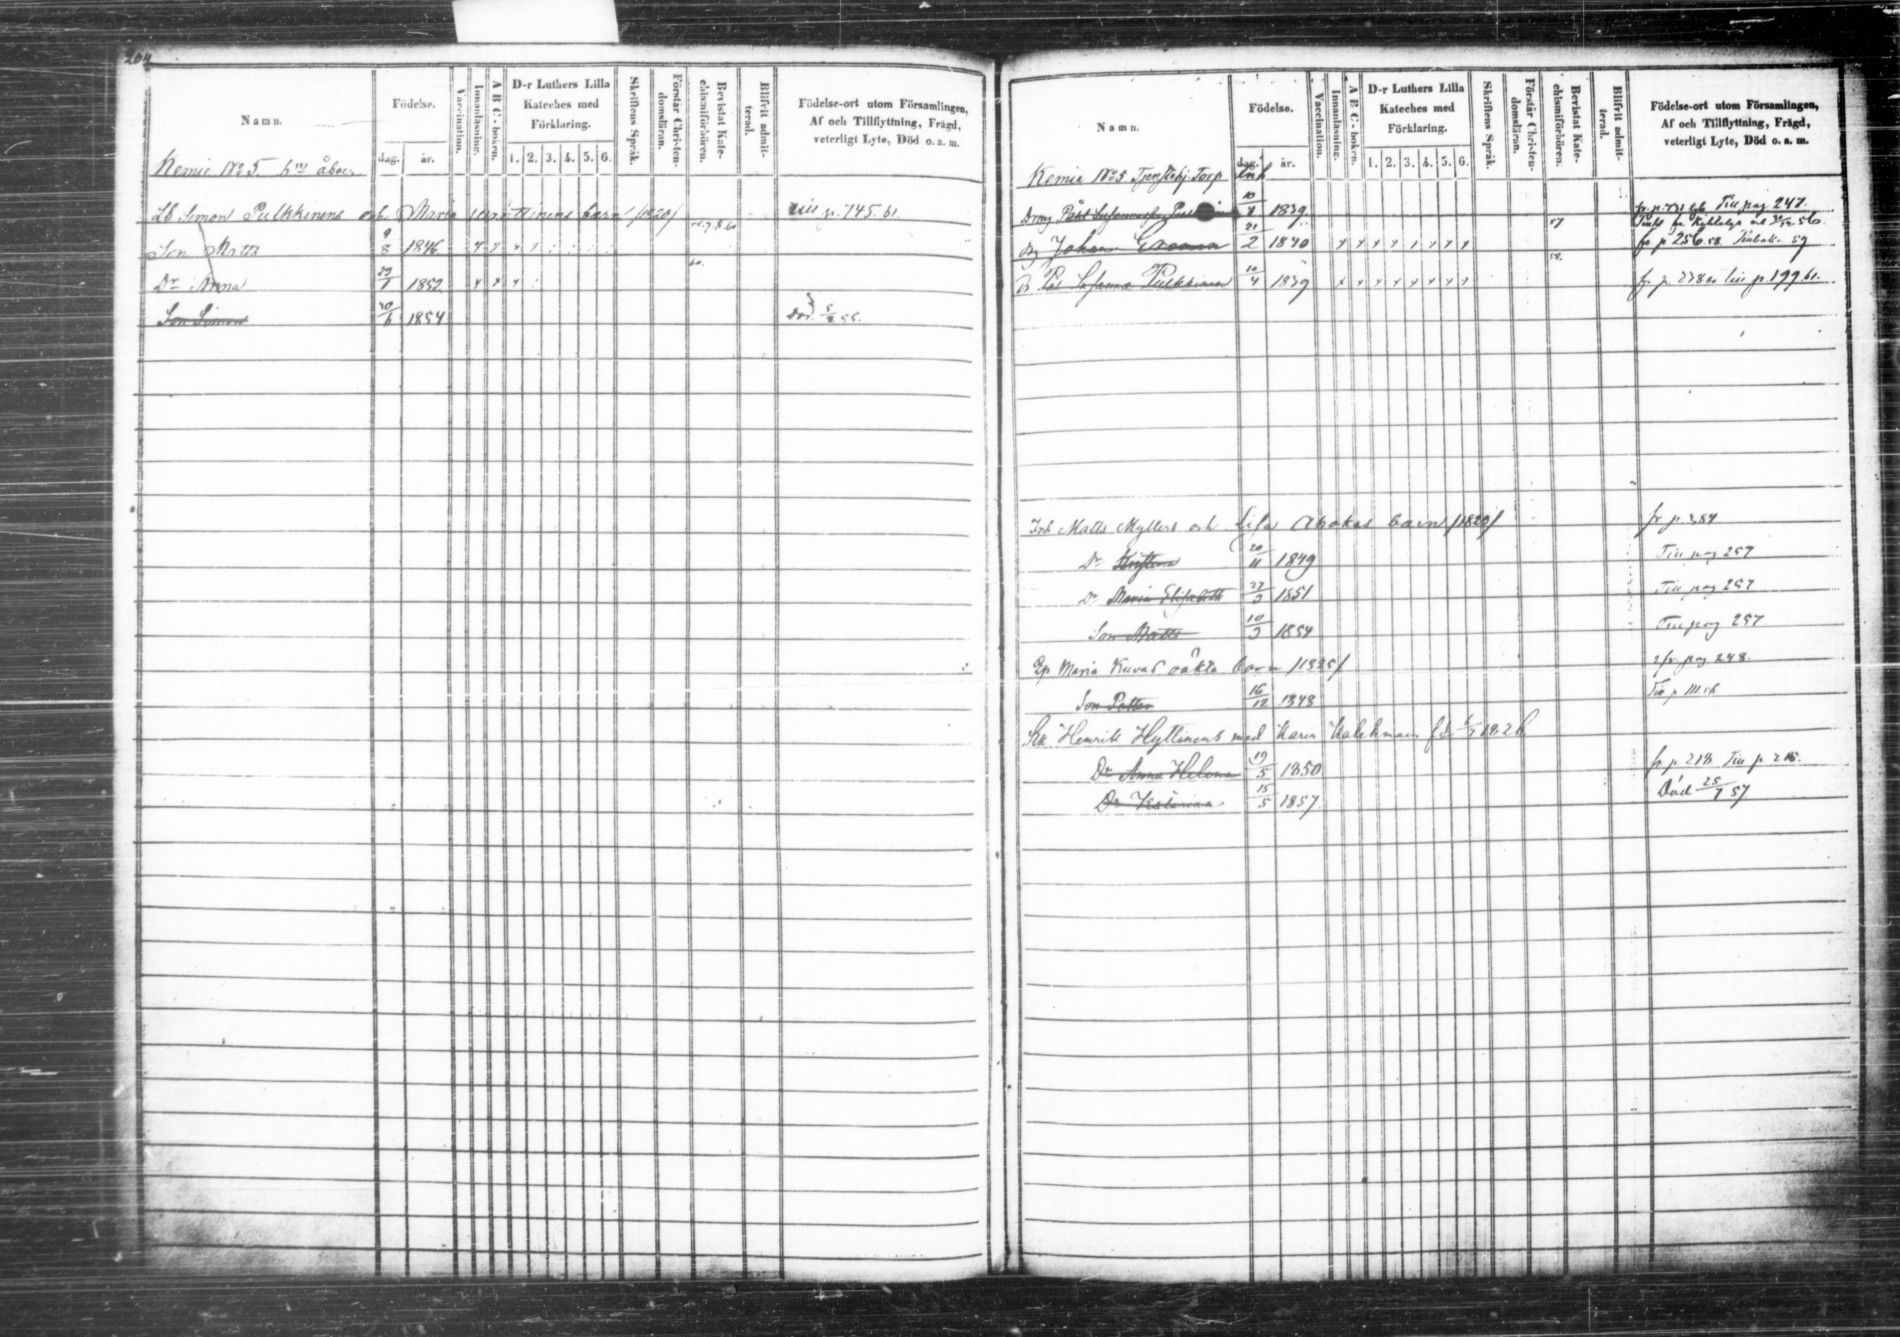 204
Namn.
Födelse.
dag. år.
Vaccination.
Innanläsning.
A B C-boken.
D-r Luthers Lilla Kateches med Förklaring.
1. 2. 3. 4. 5. 6.
Skriftens Språk.
Förstår Christendomsläran.
Bevistat Katechismiförhören.
Blifvit admitterad.
Födelse-ort utom Församlingen, Af och Tillflyttning, Frägd, veterligt Lyte, Död o. a. m.
Kemie No 5
Lb Simon Pulkkinens och Maria barn /1820/ till p. 745. 61
Son Matts 9/8 1846 x x x x
Dr Anna 29/1 1852 x x x
60.
Son Simon 30/6 1854 Död 5/2 55.
Namn.
Födelse.
dag. år.
Vaccination.
Innanläsning.
A B C-boken.
D-r Luthers Lilla Kateches med Förklaring.
1. 2. 3. 4. 5. 6.
Skriftens Språk.
Förstår Christendomsläran.
Bevistat Katechismiförhören.
Blifvit admitterad.
Födelse-ort utom Församlingen, Af och Tillflyttning, Frägd, veterligt Lyte, Död o. a. m.
Kemie No 5 Tjenstehj. Torp Inh
Dreng Påhl 1839 Till pag 247.
Dg Johan 21/2 1840 x x x x x x x x 57 fr p 256 58 59
Pål Susanna Pulkkinen 10/4 1839 x x x x x x x x 58. till p 199 61.
Inh Matts Myllers och Lisa Ahokas barn /1820/ fr p. 284
Dr Kristina 20/11 1849 Till pag 257
Dr Maria Elisabeth 27/3 1851 Till pag 257
Son Matts 10/3 1854 Till pag 257
Ep Maria Kuvas oäkta barn /1825/ pag 248.
Son Petter 16/12 1848
Henrik Hyttinens med Karin 1826
Dr Anna Helena 19/5 1850 fr p 218 Till p 215.
Dr Katarina 15/5 1857. Död 25/7 57